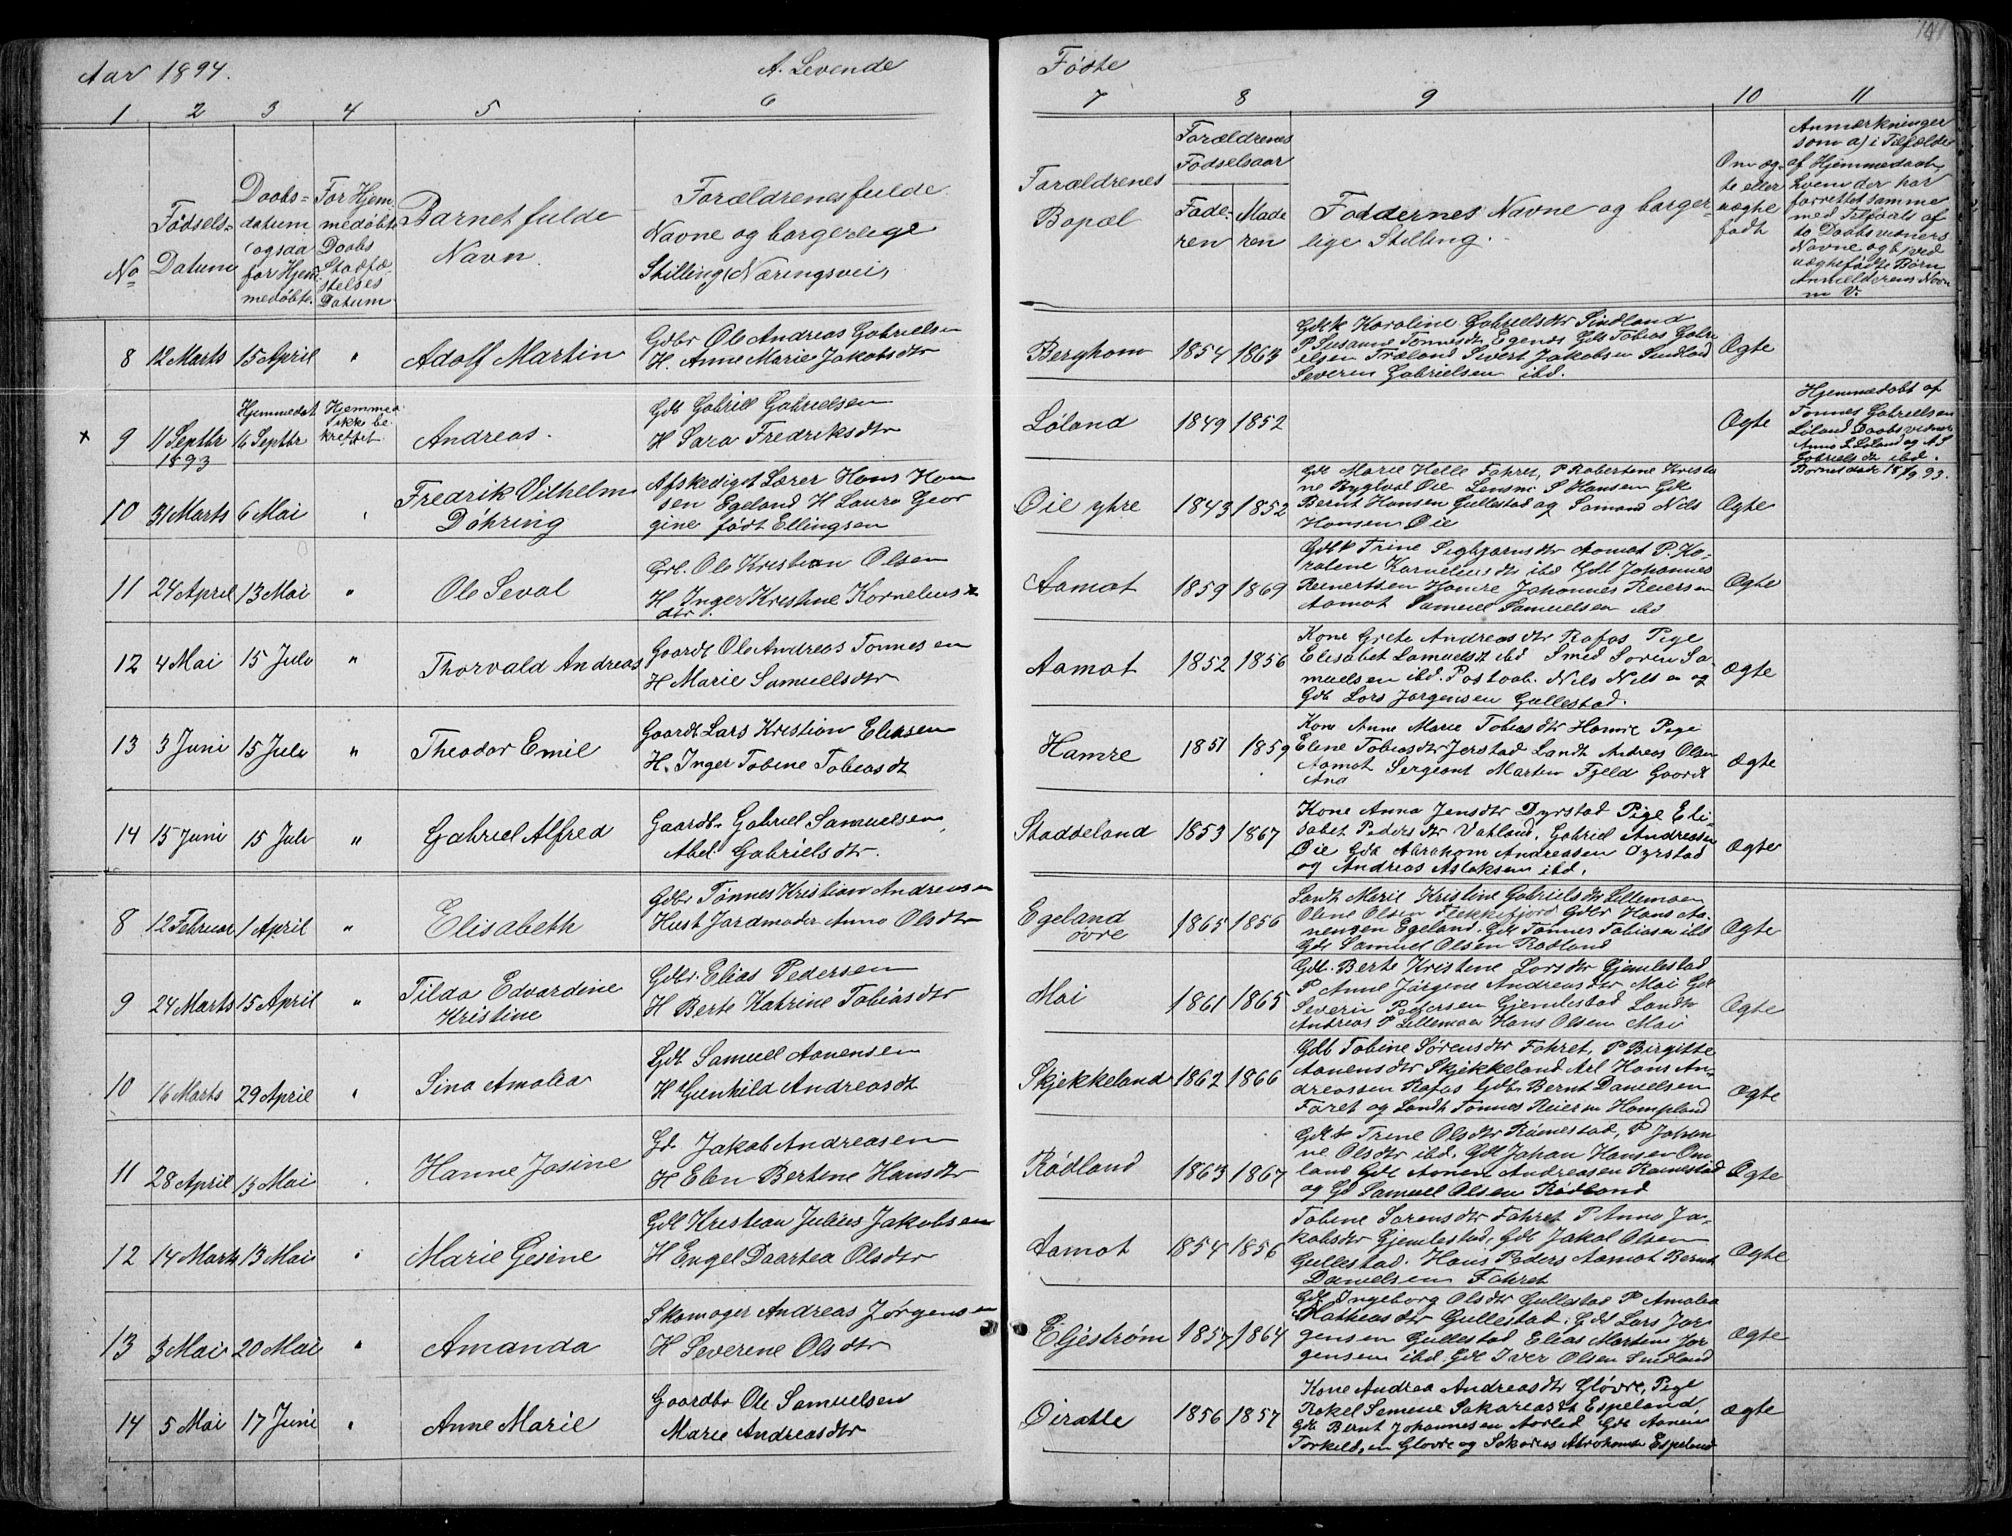 Aar 1894. A. Levende Fødte
1 2 3 4 5 6 7 8 9 10 11
No
Fødsels-
Datum
Daabs-
datum
(ogsaa
for Hjem
medøbte
For Hjem
medøbte
Daabs
Stadfæ
stelses
Datum
Barnet fulde
Navn
Forældrenes fulde
Navne og borgerlige
Stilling (Næringsvei)
Forældrenes
Bopæl
Forældrenes
Fødselsaar
Fade-
ren
Mode
ren
Faddernes Navne og borger-
lige Stilling.
Om æg-
te eller
uægte
født
Anmærkninger
som a) i Tilfælde
af Hjemmedaab,
hvem der har
forrettet samme
med Tilførsel af
to Daabsvidners
Navne og b) ved
uægtefødte Børn
Anmelderens Navn
m V.
8 12 Marts 15 April " Adolf Martin
Gdbr Ole Andreas Gabrielsen
H. Anne Marie Jakobsdtr
Berghom 1854 1863
Gdlk Karoline Gabrielsdtr Sindland
P Susanne Tønnesdtr Egenes Gdb Tobias Gabri
elsen Træland Sivert Jakobsen Sindland
Severin Gabrielsen ibd.
Ægte
x 9 11 Septbr
1893
Hjemmedøbt
16 Septbr
Hjemmed
ikke be
kreftet
Andreas.
Gdb Gabriel Gabrielsen
H Sara Fredriksdtr
Løland 1849 1852 Ægte
Hjemmedøbt af
Tønnes Gabrielsen
Løland Daabsvidner
Anna L Løland og A S
Gabrielsdtr ibd.
10 31 Marts 6 Mai Fredrik Vilhelm
Döhring
Afskediget Lærer Hans Han
sen Egeland H Laura Geor
gine født Ellingsen
Øie ytre 1843 1852
Gdl Marie Helle Fahret, P Robertine Kristi
ne Øie Lensm S Hansen Gdk
Bernt Hansen Gullestad og Samand Nils
Hansen Øie
Ægte
11 24 April 13 Mai " Ole Seval
Grl. Ole Kristian Olsen
H Inger Kristine Kornelius
dtr
Aamot 1859 1869
Gdlk Trine Sigbjørnsdtr Aamot P. Ka-
roline Korneliusdtr ibd Gdb Johannes
Reinertsen Hamre Johannes Reiersen
Aamot Samuel Samuelsen ibd
Ægte
12 4 Mai 15 Juli " Thorvald Andreas
Gaardb Ole Andreas Tønnesen
H Marie Samuelsdtr
Aamot 1852 1856
Kone Grete Andreasdtr Rafos Pige
Elisabet Samuelsdt ibd Smed Søren Sa-
muelsen ibd. Postaab. Nils Nilsen og
Gdb Lars Jørgensen Gullestad.
Ægte
13 3 Juni 15 Juli " Theodor Emil
Gaardb Lars Kristian Eliasen
H. Inger Tobine Tobiasdt
Hamre 1851 1859
Kone Anne Marie Tobiasdtr Hamre Pige
Eline Tobiasdtr Jerstad Landh Andreas Olsen
Aamot Sergeant Martin Fjeld Gaardb
Ana
Ægte
14 15 Juni 15 Juli " Gabriel Alfred
Gaardb. Gabriel Samuelsen,
Abel Gabrielsdtr.
Staddeland 1853 1867
Kone Anna Jensdtr Dyrstad Pige Eli
sabet Pedersdtr Vatland, Gabriel Andreasen
Øie Gdb Abraham Andreasen Dyrstad
og Andreas Aslaksen ibd.
Ægte
8 12 Februar 1 April " Elisabeth
Gdbr Tønnes Kristian Andreasen
Hust Jordmoder Anna Olsdtr
Egeland
øvre
1865 1856
Landh Marie Kristine Gabrielsdtr Lillemoen
Oline Olsen Flekkefjord Gdbr Hans Aa-
nensen Egeland. Gdl Tønnes Tobiasen ibd
Gdl Samuel Olsen Rødland
Ægte
9 24 Marts 15 April " Tilda Edvardine
Kristine
Gdbr. Elias Pedersen
H Berte Katrine Tobiasdtr
Moi 1861 1865
Gdb. Berte Kristine Larsdtr Gjemlestad
P Anne Jørgine Andreasdtr Moi Gdb
Severin Pedersen Gjemlestad Landh
Andreas P Lillemoen Hans Olsen Moi
Ægte
10 16 Marts 29 April " Sina Amalia
Gdb Samuel Aanensen
H Gunhild Andreasdt
Skjekkeland 1862 1866
Gdb Tobine Sørensdtr Fahret, P Birgitte
Aanensdtr Skjekkeland Arl Hans An-
dreassen Rafos Gdb. Bernt Danielsen
Faret og Landh Tønnes Reiersen Hompland
Ægte
11 28 April 13 Mai Hanne Josine
Gd. Jakob Andreasen
H Elen Bertine Hansdtr
Rødland 1863 1867
Gdlk Trine Olsdtr Rømestad, P Johan
ne Olsdtr ibd. Gdl Johan Hansen Om
land Gdl Aanen Andreasen Rømestad
og Gd Samuel Olsen Rødland
Ægte
12 14 Marts 13 Mai Marie Gesine
Gdl Kristian Julius Jakobsen
H Engel Daartea Olsdtr
Aamot 1854 1856
Tobine Sørensdtr Fahret P Anna Ja-
kobsdtr Gjemlestad, Gdl Jakob Olsen
Gullestad. Hans Peders Aamot Bernt
Danielsen Fahret
Ægte
13 3 Mai 20 Mai Amanda
Skomager Andreas Jørgensen
H Severine Olsdtr
Eljestrøm 1857 1864
Gdl Ingeborg Olsdtr Gullestad P Amalia
Mathiasdtr Gullestad. Gdl Lars Jør
gensen Gullestad Elias Martin Jør
gensen ibd. Gdl Iver Olsen Sindland
Ægte
14 5 Mai 17 Juni Anne Marie
Gaardbr Ole Samuelsen
Marie Andreasdtr
Oiratle 1856 1857
Kone Andrea Andreasdtr Gløvre, Pige
Rakel Semine Sakariasdt Espeland,
Gdb Bernt Johannesen Aarlid Gdb Aanen
Torkildsen Gløvre og Sakarias Abrahamsen Espeland
Ægte